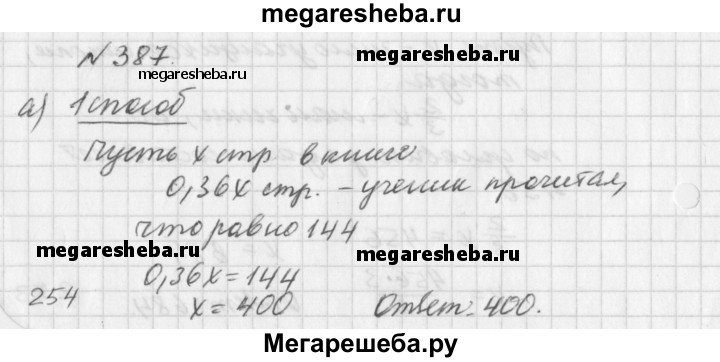 megaresheba.ru
№ 387.
megaresheba.ru
а) 1 способ
Пусть x стр в книге
0,36x стр. – ученик прочитал,
что равно 144
megaresheba.ru megaresheba.ru
0,36x = 144
254 x = 400 Ответ: 400.
Мегарешеба.ру